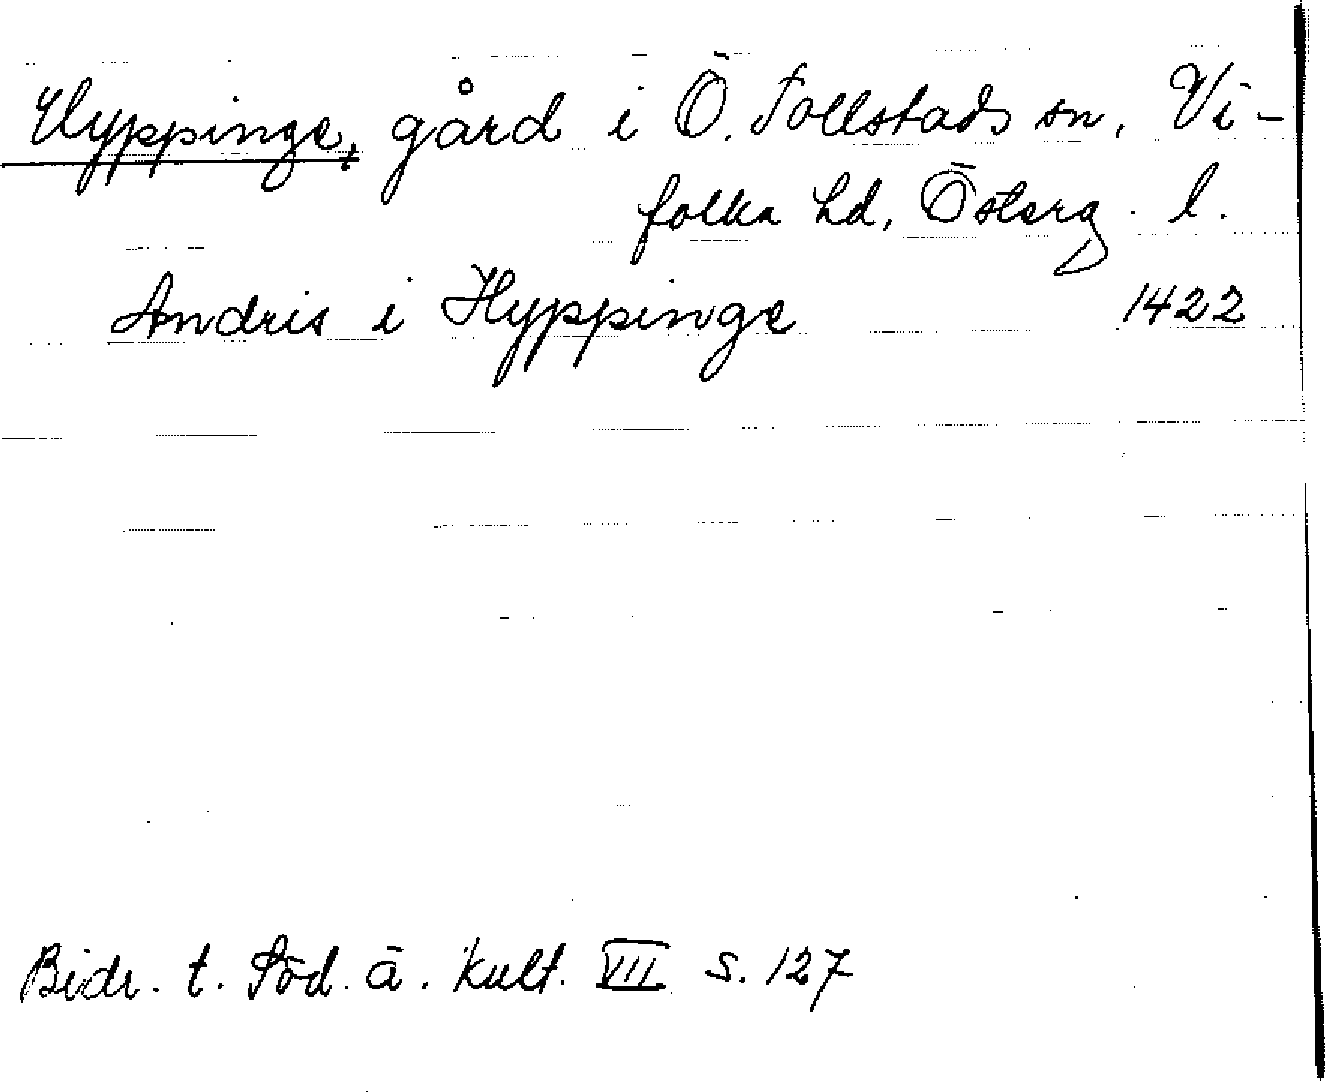 Hyppinge, gård i Ö. Tollstads sn, Vi-
folka hd, Österg. l.
Andris i Hyppinge 1422
Bidr. t. Söd. ä. Kult. VII s. 127